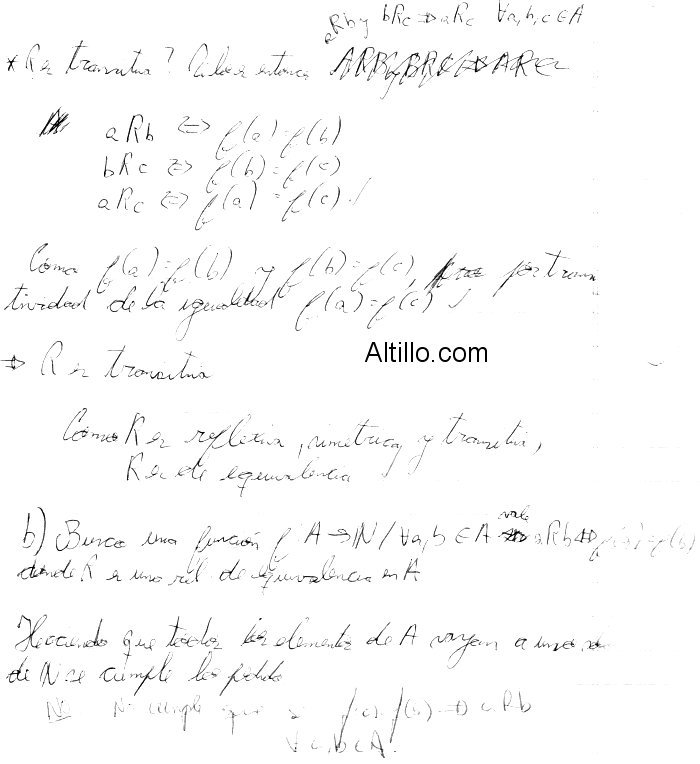 aRb y bRc ⇒ aRc ∀a,b,c ∈ A
* R es transitiva? entonces
aRb ⇔ f(a)=f(b)
bRc ⇔ f(b)=f(c)
aRc ⇔ f(a)=f(c) ✓
Como f(a)=f(b) y f(b)=f(c), por transi
tividad de la igualdad f(a)=f(c) ✓
Altillo.com
⇒ R es transitiva
Como R es reflexiva, simetrica, y transitiva,
R es de equivalencia
b) Busco una función f A→ℕ / ∀a,b ∈ A vale aRb ⇔ f(a)=f(b)
donde R es una rel de equivalencia en A
Haciendo que todos los elementos de A vayan a uno
de ℕ se cumple lo pedido
No. No cumple que si f(a)=f(b) ⇒ aRb
∀a,b ∈ A.